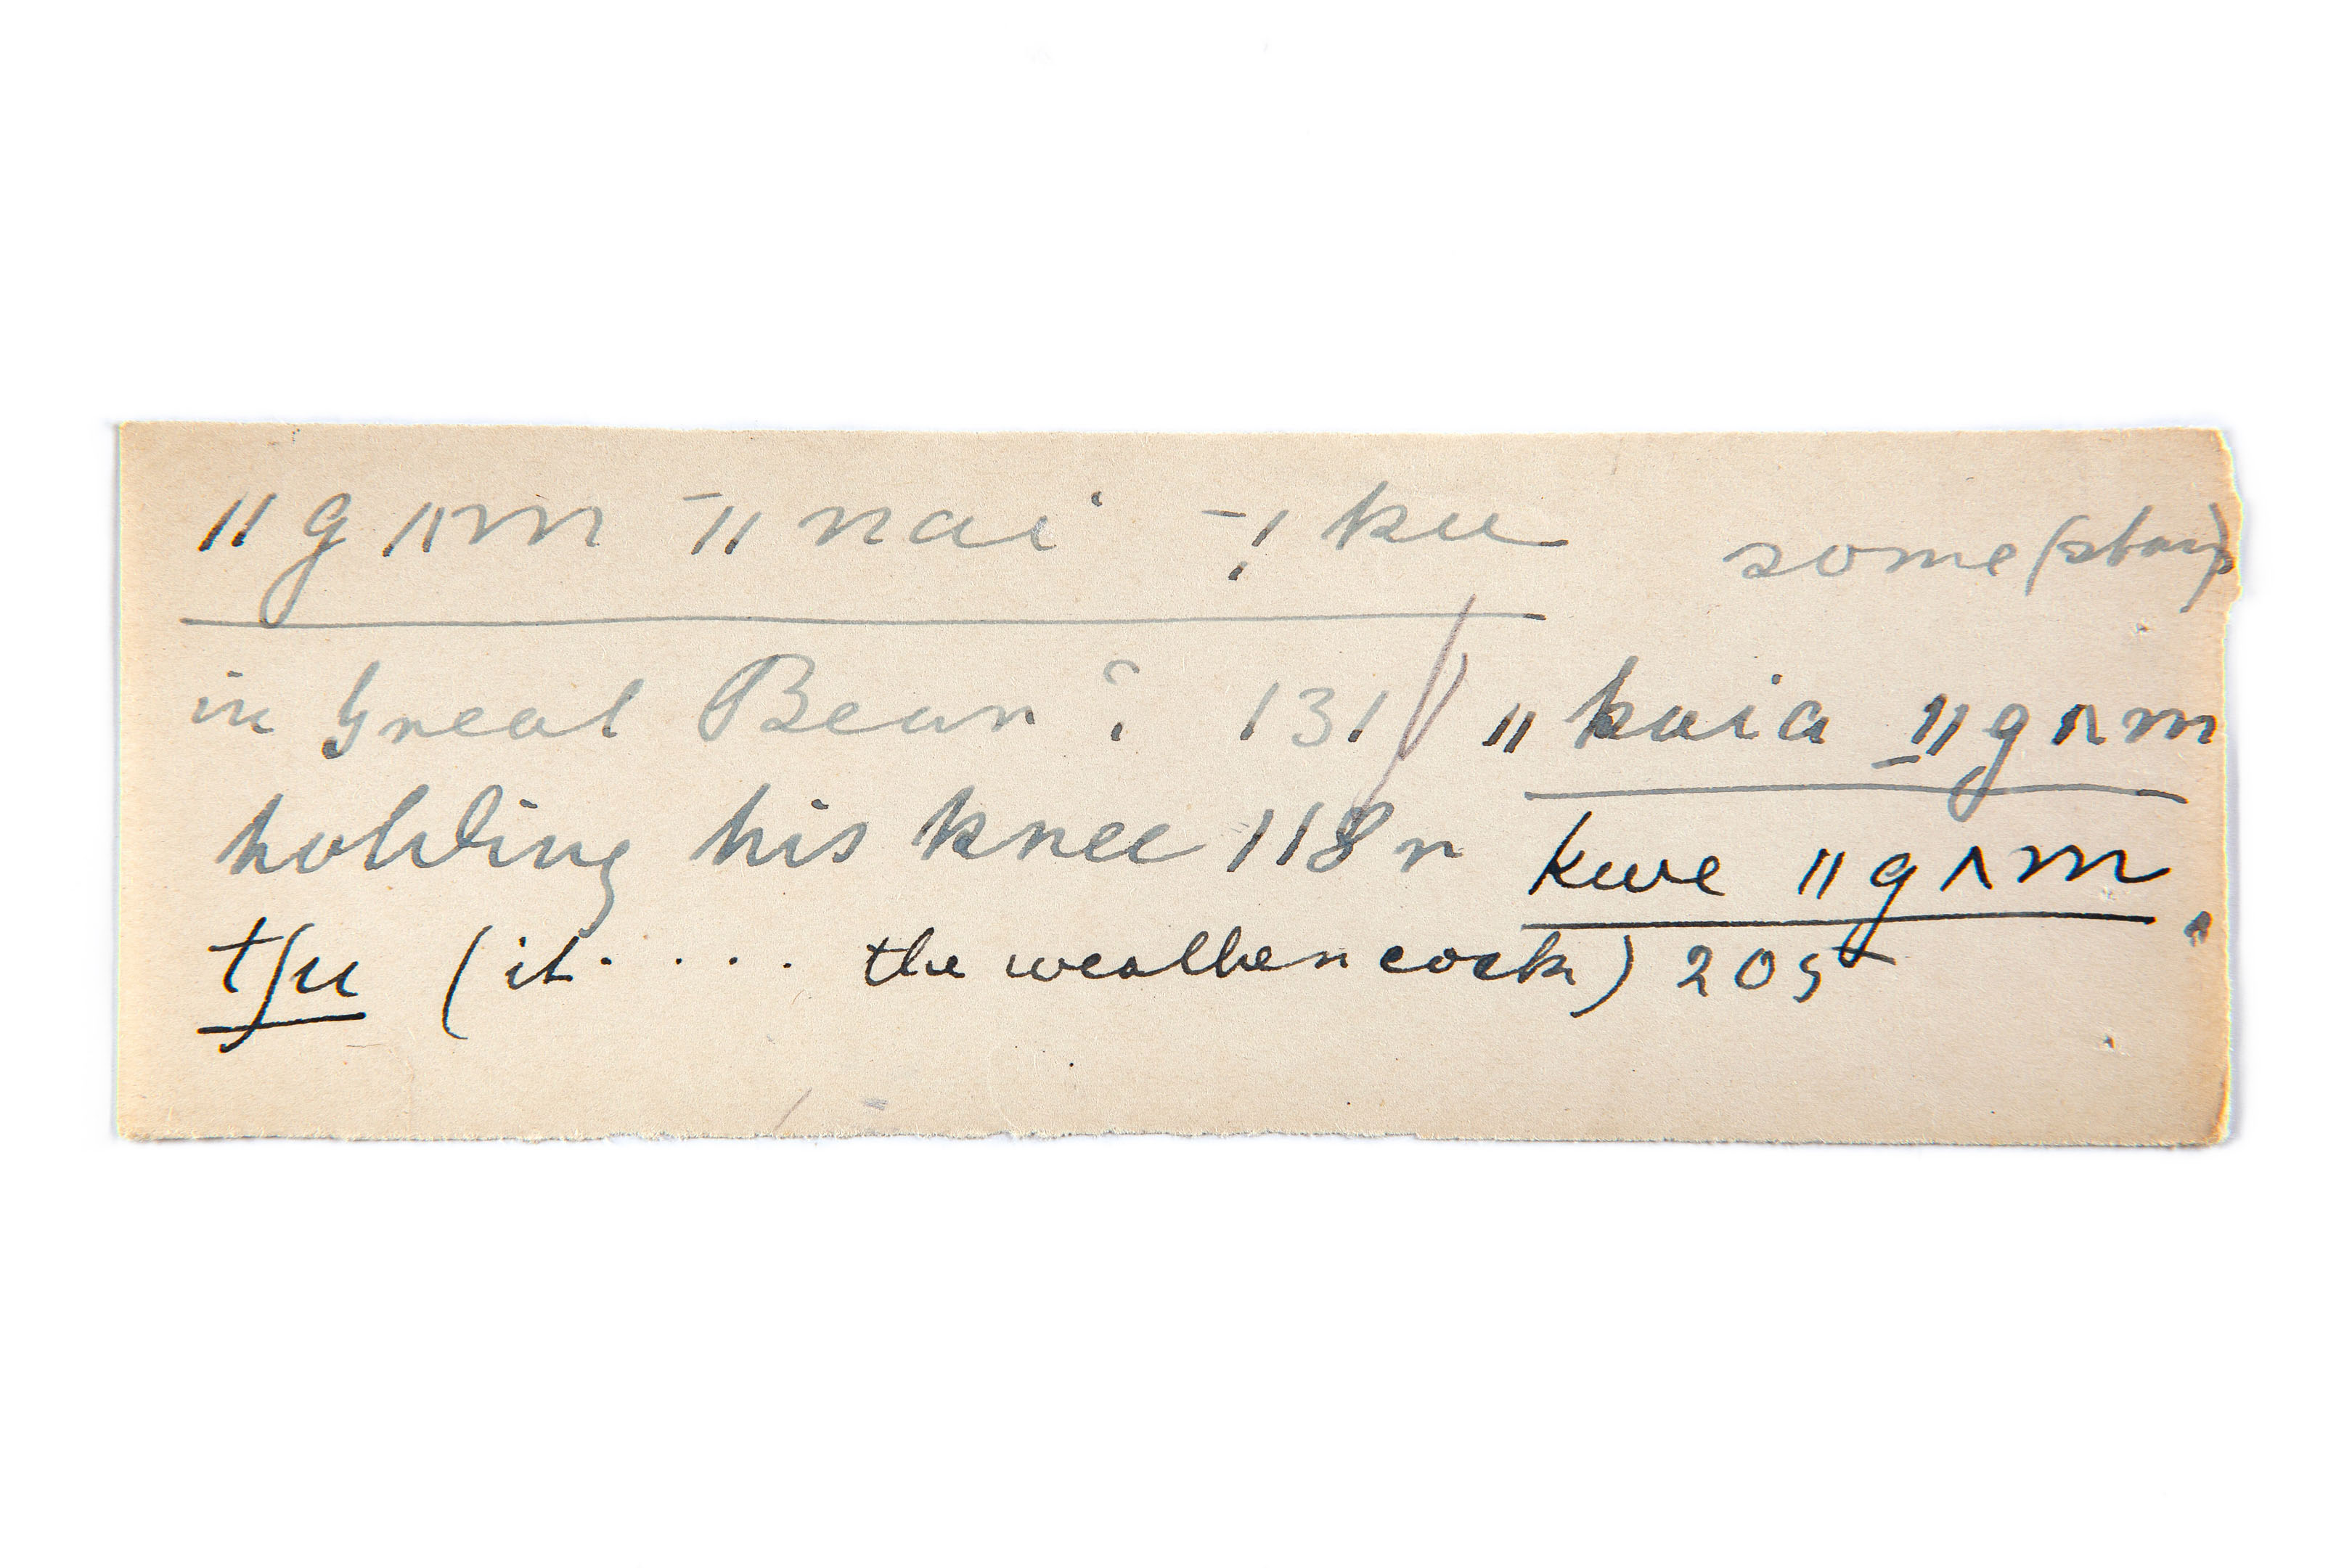 ǁgʌm ˉǁnai ˉǃku some (star)
in Great Bear ? 131 ǁkuia ˍǁgʌm
holding his knee 118 n kwe ǁgʌm
tʃu (it . . . . the weathercock) 205